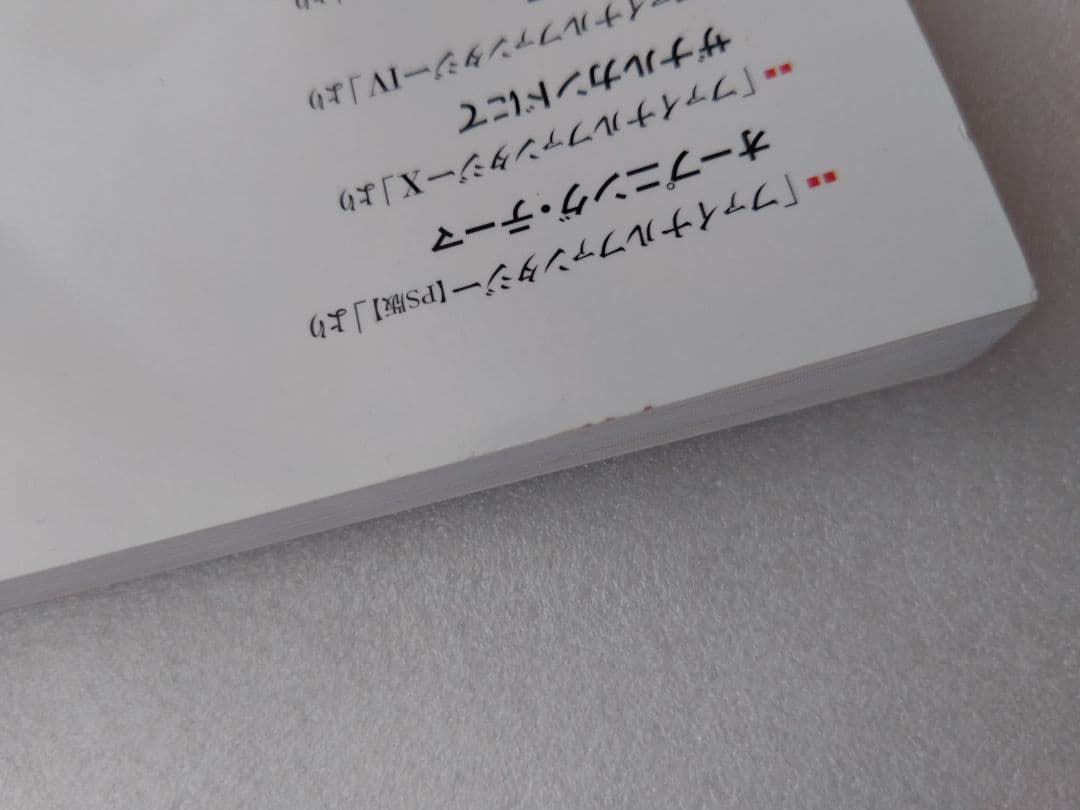 「ファイナルファンタジー【PS版】」より
オープニング・テーマ
「ファイナルファンタジーX」より
ザナルカンドにて
イナルファンタジーIV」より